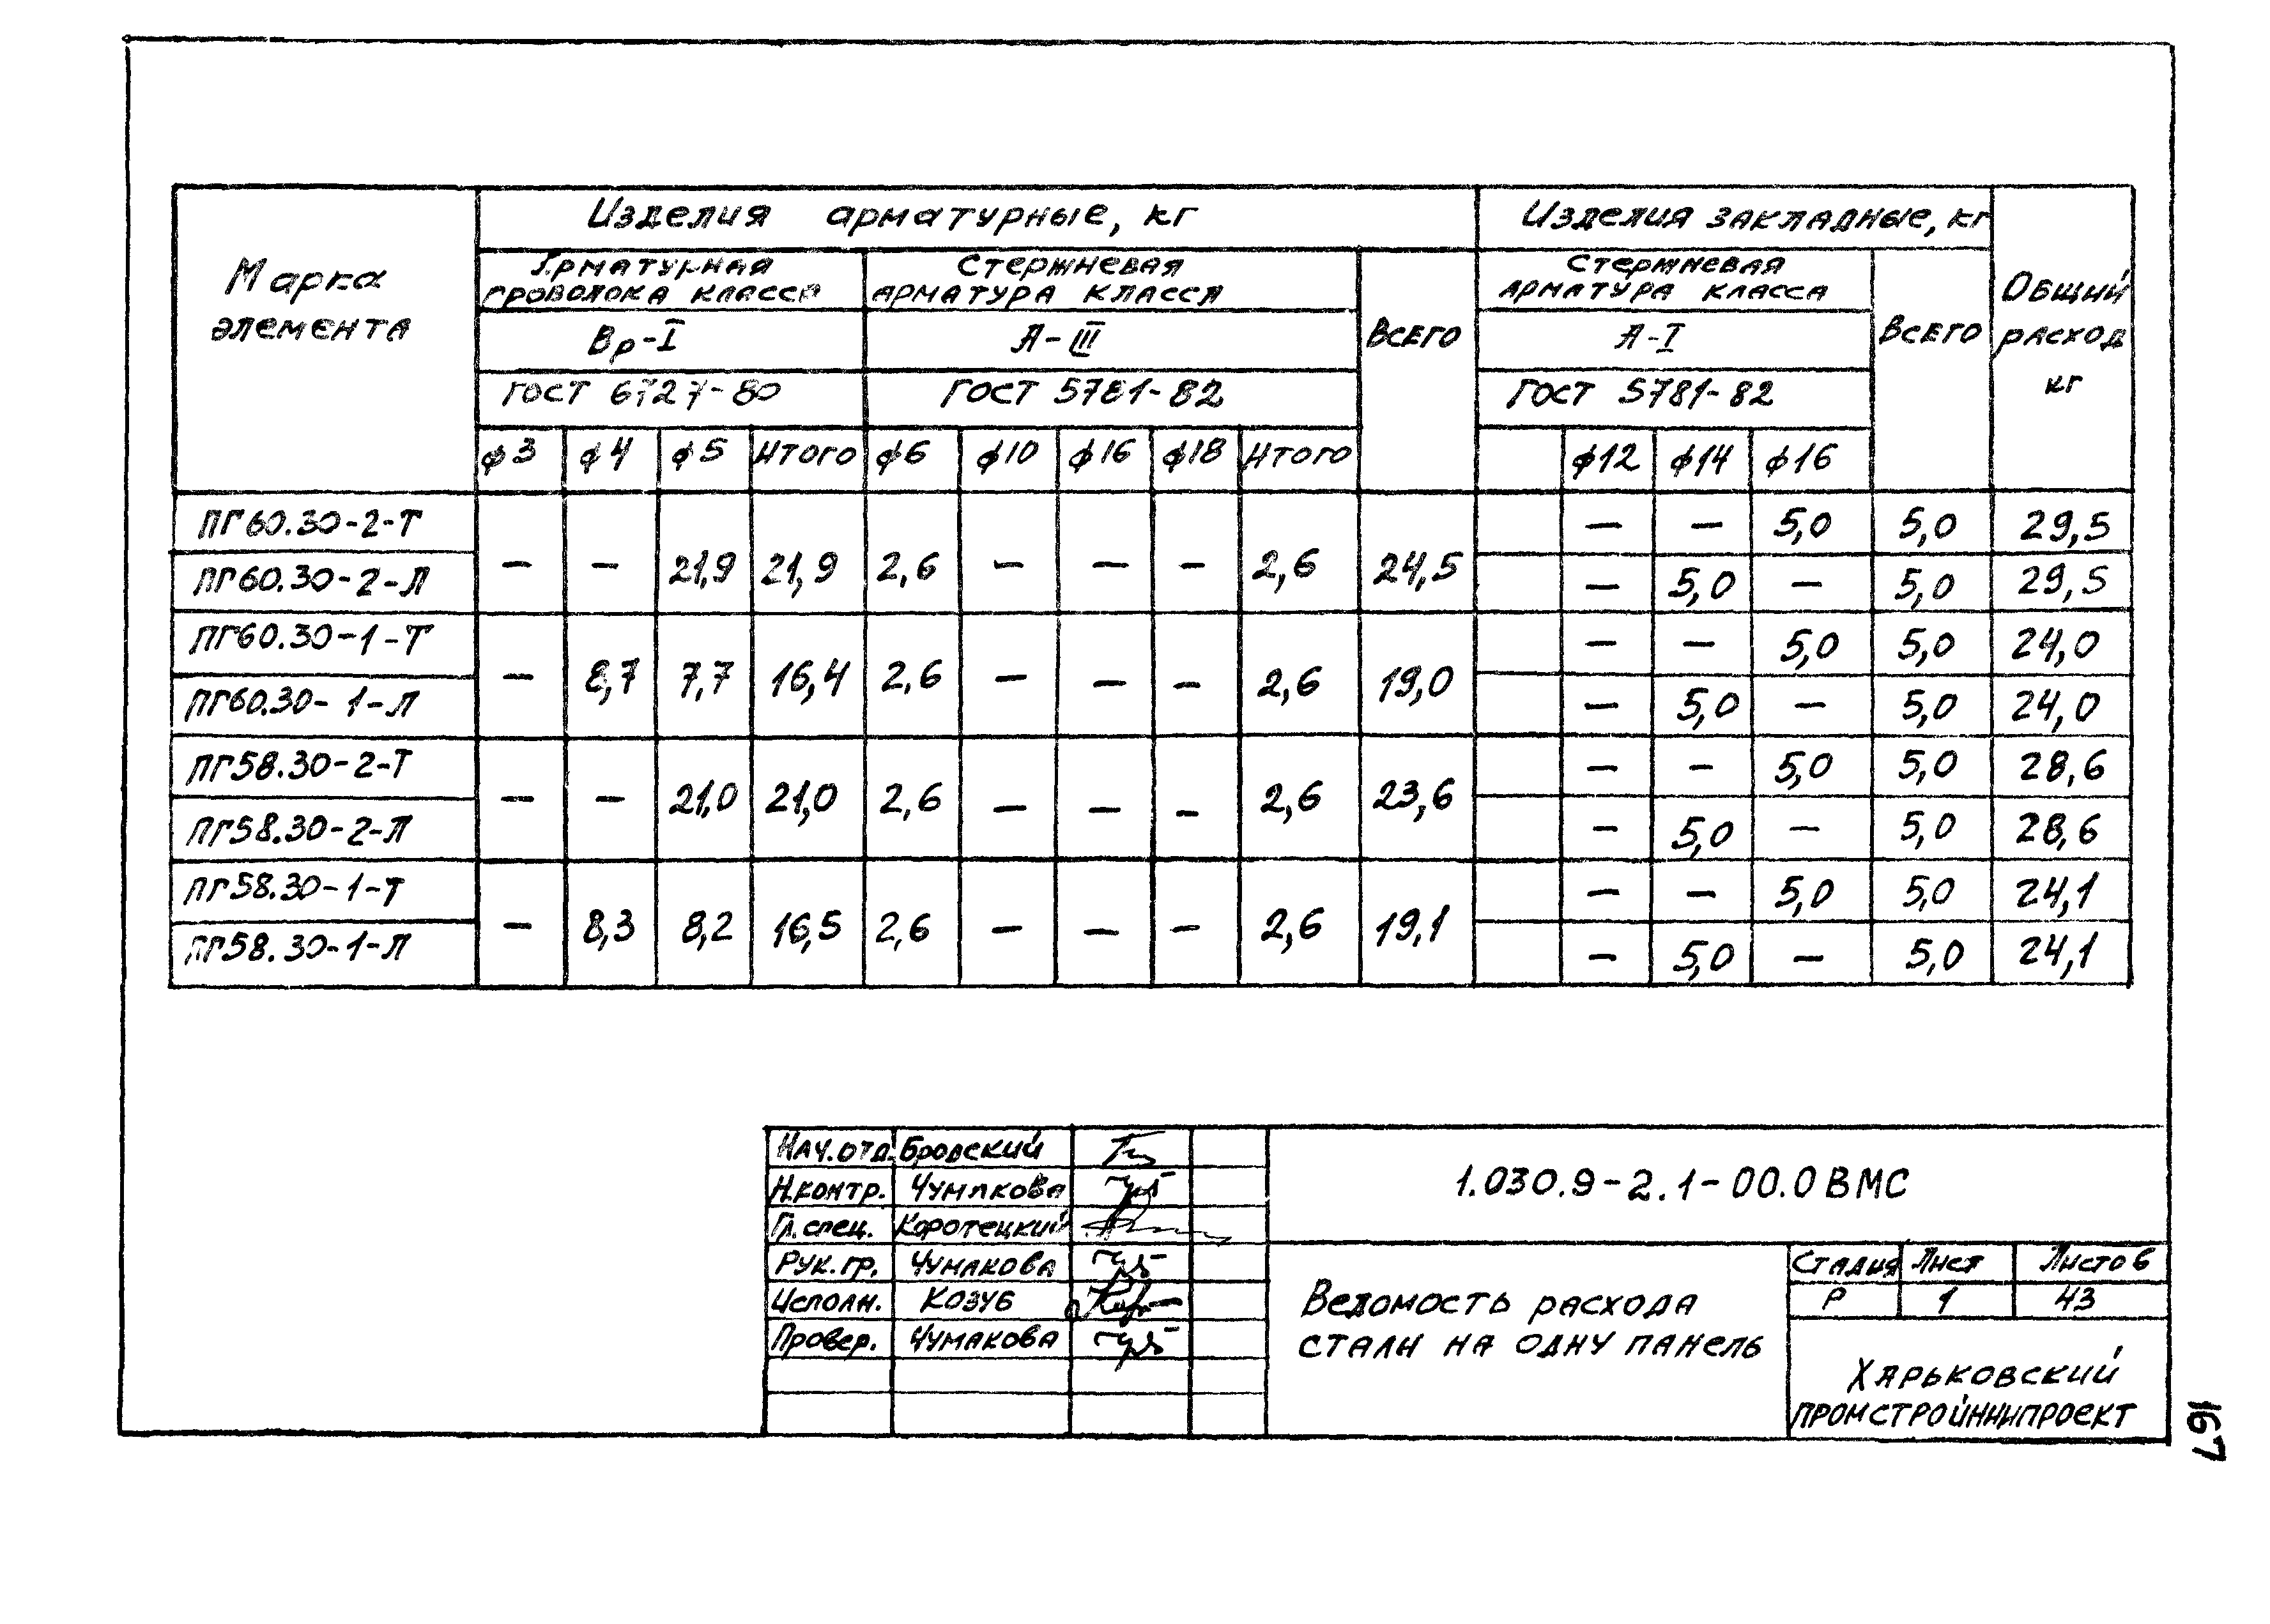 Марка элемента
Изделия арматурные, кг
Изделия закладные, кг
Общий расход кг
Арматурная проволока класса
Стержневая арматура класса
Всего
Стержневая арматура класса
Всего
Вр-I
А-III
А-I
ГОСТ 6727-80
ГОСТ 5781-82
ГОСТ 5781-82
ϕ3 ϕ4 ϕ5 Итого ϕ6 ϕ10 ϕ16 ϕ18 Итого ϕ12 ϕ14 ϕ16
ПГ60.30-2-Т — — 21,9 21,9 2,6 — — — 2,6 24,5 — — 5,0 5,0 29,5
ПГ60.30-2-Л — 5,0 — 5,0 29,5
ПГ60.30-1-Т — 8,7 7,7 16,4 2,6 — — — 2,6 19,0 — — 5,0 5,0 24,0
ПГ60.30-1-Л — 5,0 — 5,0 24,0
ПГ58.30-2-Т — — 21,0 21,0 2,6 — — — 2,6 23,6 — — 5,0 5,0 28,6
ПГ58.30-2-Л — 5,0 — 5,0 28,6
ПГ58.30-1-Т — 8,3 8,2 16,5 2,6 — — — 2,6 19,1 — — 5,0 5,0 24,1
ПГ58.30-1-Л — 5,0 — 5,0 24,1
Нач.отд. Бродский
Н.контр. Чумакова
Гл.спец. Коротецкий
Рук.гр. Чумакова
Исполн. Козуб
Провер. Чумакова
1.030.9-2.1-00.0 ВМС
Ведомость расхода
стали на одну панель
Стадия Лист Листов
Р 1 43
Харьковский
ПРОМСТРОЙНИИПРОЕКТ
167